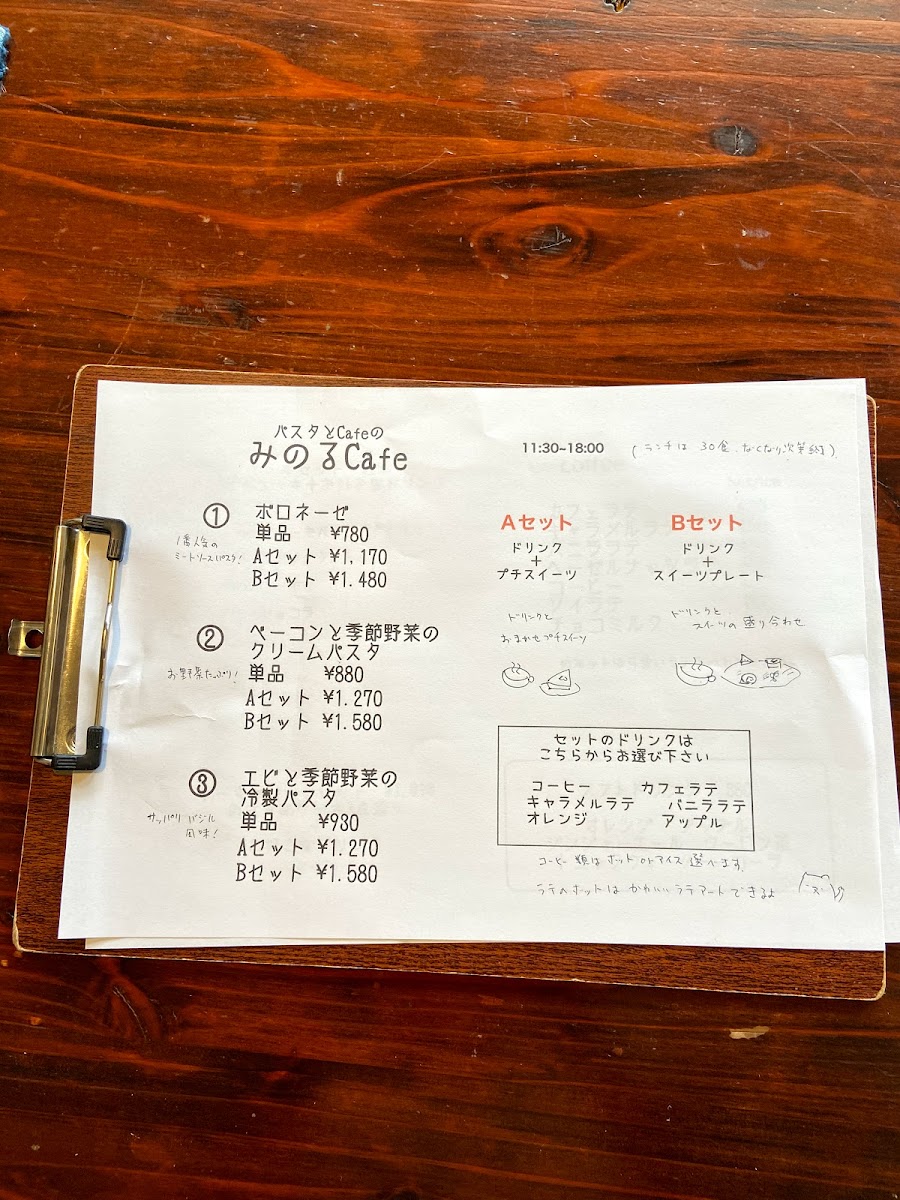 パスタとCafeの
みのるCafe
11:30~18:00 (ランチは 30食、なくなり次第終了)
① ボロネーゼ
単品 ¥780
Aセット ¥1,170
Bセット ¥1.480
1番人気の
ミートソースパスタ!
② ベーコンと季節野菜の
クリームパスタ
単品 ¥880
Aセット ¥1.270
Bセット ¥1.580
お野菜たっぷり!
③ エビと季節野菜の
冷製パスタ
単品 ¥930
Aセット ¥1.270
Bセット ¥1.580
サッパリ バジル
風味!
Aセット
ドリンク
+
プチスイーツ
ドリンクと
おまかせプチスイーツ
Bセット
ドリンク
+
スイーツプレート
ドリンクと
スイーツの盛り合わせ
セットのドリンクは
こちらからお選び下さい
コーヒー カフェラテ
キャラメルラテ バニララテ
オレンジ アップル
コーヒー類はホットorアイス選べます。
ラテのホットは かわいいラテアートできるよ